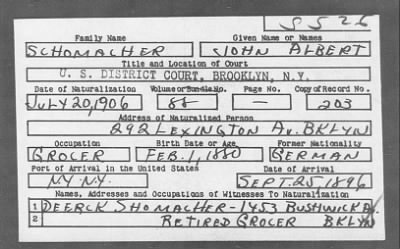 SS26
Family Name Given Name or Names
SCHOMACHER JOHN ALBERT
Title and Location of Court
U. S. DISTRICT COURT, BROOKLYN, N.Y.
Date of Naturalization Volume or Bundle No. Page No. Copy of Record No.
JULY 20,1906 88 — 203
Address of Naturalized Person
292 LEXINGTON AV. BKLYN
Occupation Birth Date or Age Former Nationality
GROCER FEB. 1, 1880 GERMAN
Port of Arrival in the United States Date of Arrival
N.Y. N.Y. SEPT. 25, 1896
Names, Addresses and Occupations of Witnesses To Naturalization
1 DEERCK SHOMACHER - 1453 BUSHWICK A.
2 RETIRED GROCER BKLYN